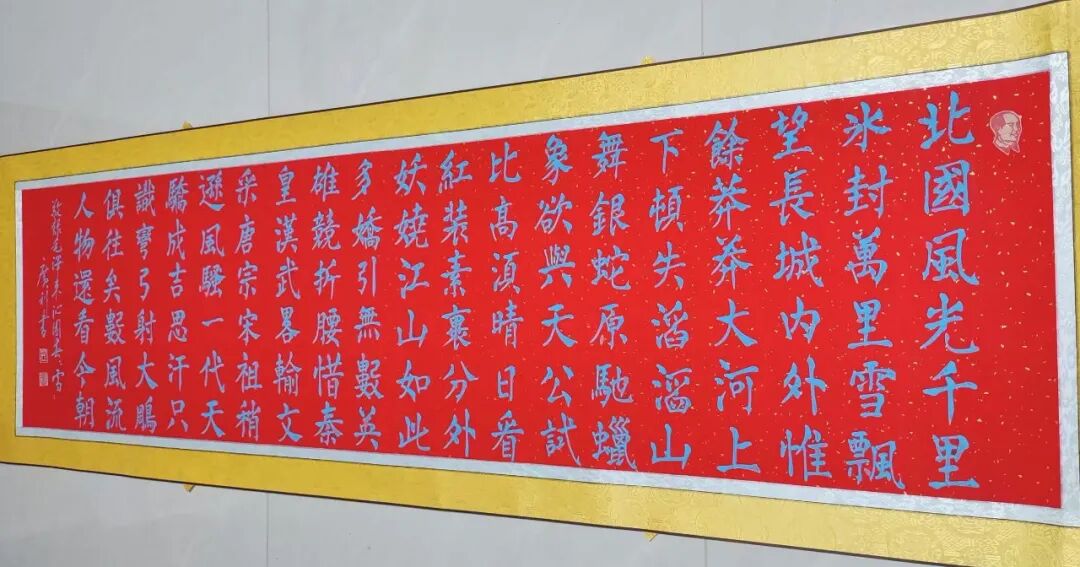 北國風光千里
氷封萬里雪飄
望長城内外惟
餘莽莽大河上
下頓失滔滔山
舞銀蛇原馳蠟
象欲與天公試
比高須晴日看
紅装素裹分外
妖嬈江山如此
多嬌引無數英
雄競折腰惜秦
皇漢武畧輸文
采唐宗宋祖稍
遜風騷一代天
驕成吉思汗只
識彎弓射大鵰
俱往矣數風流
人物還看今朝
敬録毛泽東沁園春雪
書